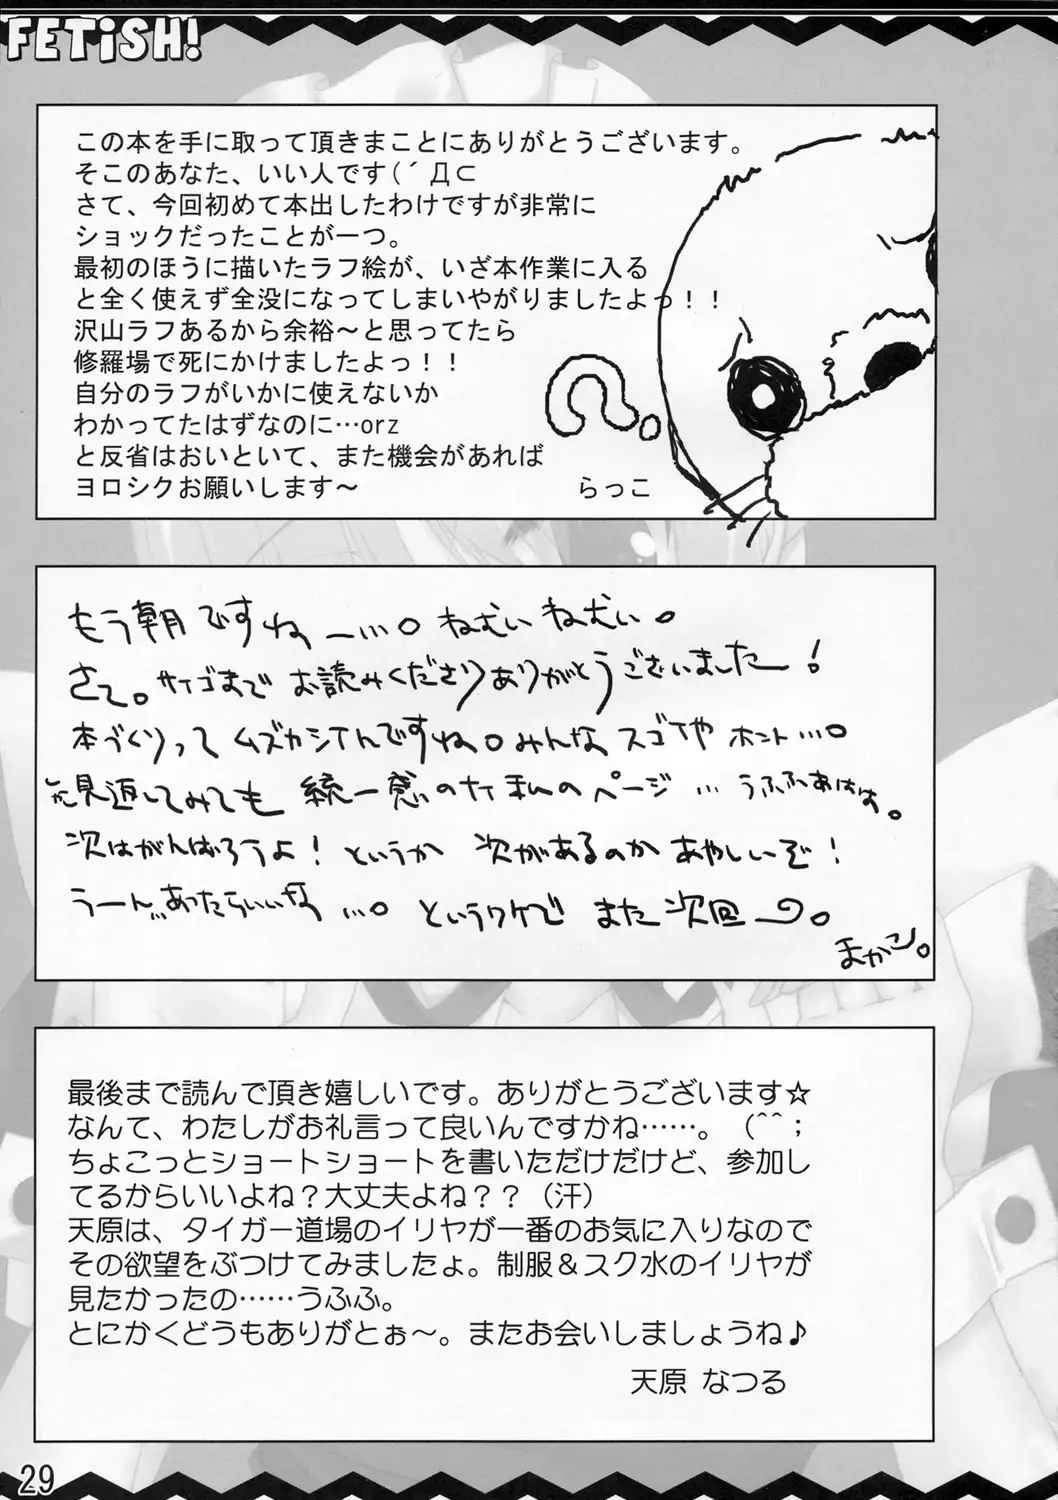 FETiSH!
この本を手に取って頂きまことにありがとうございます。
そこのあなた、いい人です(´Д⊂
さて、今回初めて本出したわけですが非常に
ショックだったことが一つ。
最初のほうに描いたラフ絵が、いざ本作業に入る
と全く使えず全没になってしまいやがりましたよっ！！
沢山ラフあるから余裕～と思ってたら
修羅場で死にかけましたよっ！！
自分のラフがいかに使えないか
わかってたはずなのに…orz
と反省はおいといて、また機会があれば
ヨロシクお願いします～
らっこ
もう朝ですねー…。ねむいねむい。
さて。サイゴまでお読みくださりありがとうございましたー！
本づくりってムズカシイんですね。みんなスゴイや ホント…。
見返してみても 統一感のナイ私のページ…うふふあはは。
次はがんばろうよ！というか 次があるのかあやしいぞ！
うーん、あったらいいな…。というワケで また次回
まかこ。
最後まで読んで頂き嬉しいです。ありがとうございます☆
なんて、わたしがお礼言って良いんですかね……。（^^；
ちょこっとショートショートを書いただけだけど、参加し
てるからいいよね？大丈夫よね？？（汗）
天原は、タイガー道場のイリヤが一番のお気に入りなので
その欲望をぶつけてみましたょ。制服＆スク水のイリヤが
見たかったの……うふふ。
とにかくどうもありがとぉ～。またお会いしましょうね♪
天原 なつる
29